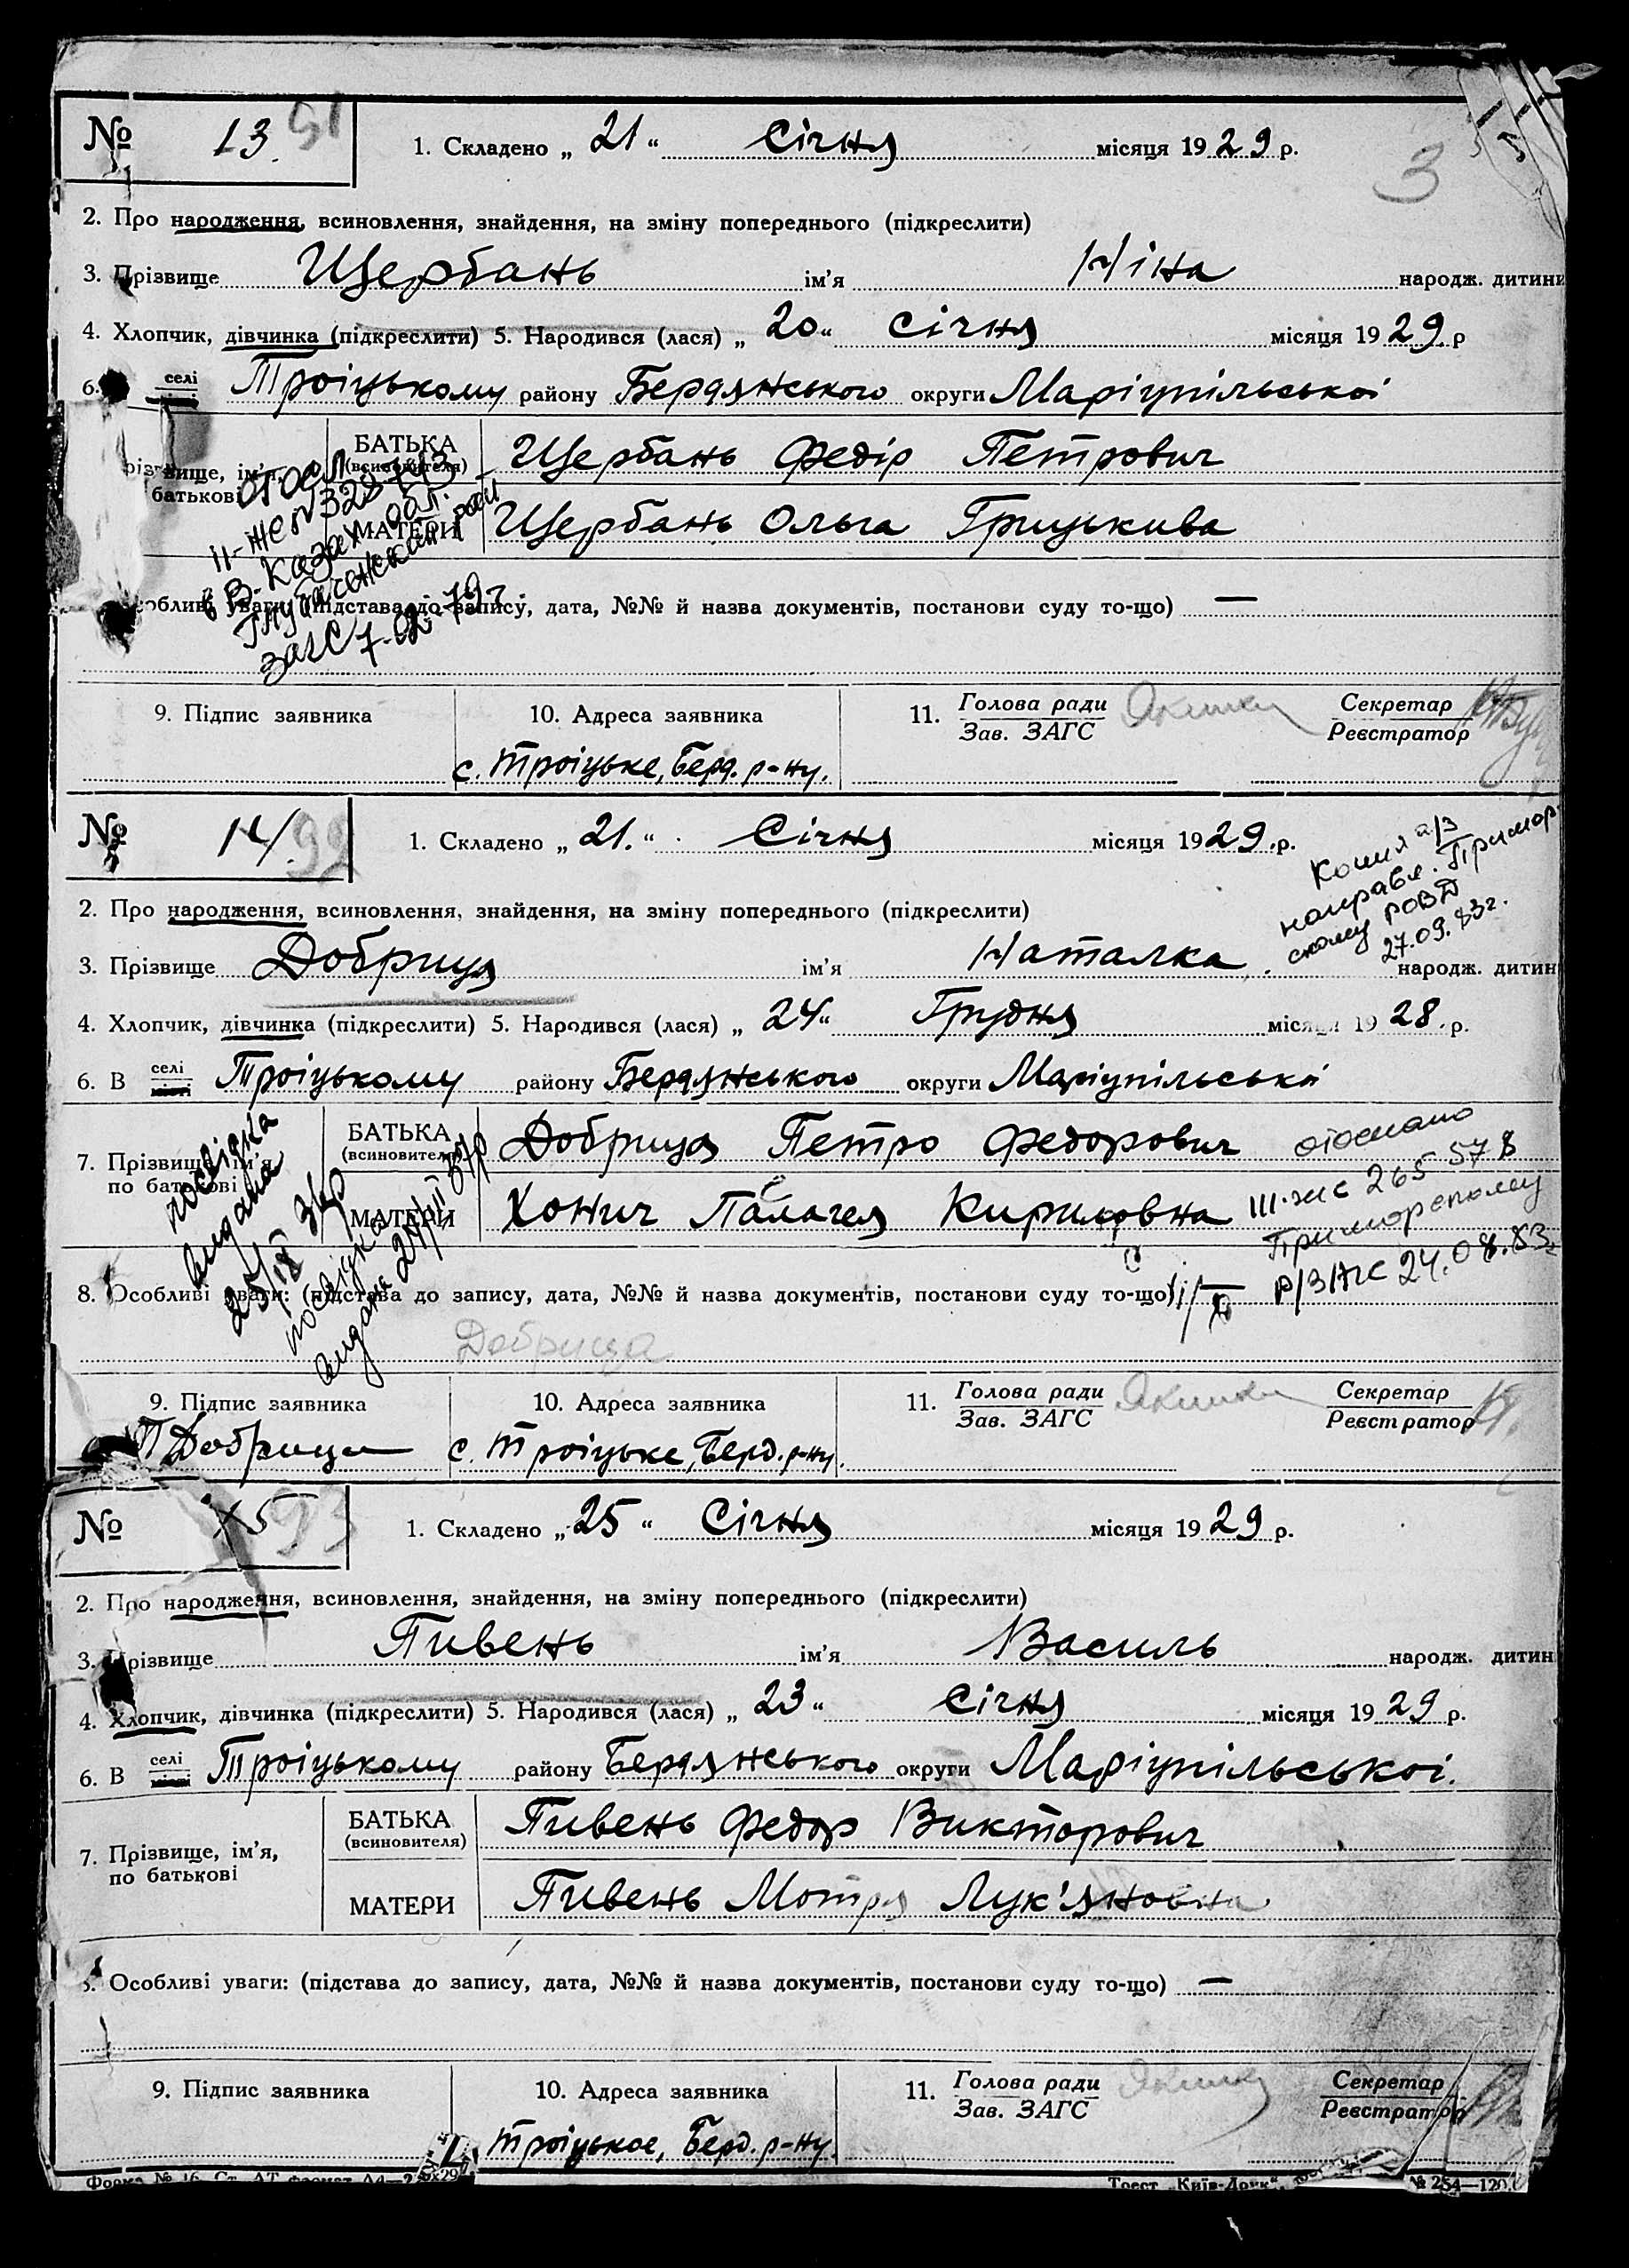 № 13. 91
1. Складено „ 21 “ Січня місяця 1929 р.
3
2. Про народження, всиновлення, знайдення, на зміну попереднього (підкреслити)
3. Прізвище Щербань ім’я Ніна народж. дитини
4. Хлопчик, дівчинка (підкреслити) 5. Народився (лася) „ 20 “ січня місяця 1929 р
6. селі Троіцькому району Бердянського округи Маріупільськоі
БАТЬКА (всиновителя) Щербань Федір Петрович
вище, ім’я, батькові
МАТЕРИ Щербань Ольга Грицькива
отосл
II-ЖС № 328743
в В.-Казах. обл.
загС 7-02-79г.
собливі уваги: (підстава до запису, дата, №№ й назва документів, постанови суду то-що) —
9. Підпис заявника 10. Адреса заявника 11. Голова ради Зав. ЗАГС Секретар Реєстратор
с. Троіцьке, Берд. р-ну.
№ 14. 92
1. Складено „ 21. “ Січня місяця 1929. р.
Копия а/з
направл. Примор
скому РОВД
27.09.83г.
2. Про народження, всиновлення, знайдення, на зміну попереднього (підкреслити)
3. Прізвище Добриця ім’я Наталка народж. дитин
4. Хлопчик, дівчинка (підкреслити) 5. Народився (лася) „ 24 “ Грудня місяця 1928. р.
6. В селі Троіцькому району Бердянського округи Маріупільськоі
7. Прізвище, ім’я, по батькові
БАТЬКА (всиновителя) Добриця Петро Федорович
МАТЕРИ Хонич Палагея Кириловна
отослано
III-жс 265 578
Приморскому
р/ЗАГС 24.08.83г
посвідка
видана
25/IX 34р
посвідка
видана 24/II 37р
8. Особливі уваги: (підстава до запису, дата, №№ й назва документів, постанови суду то-що)
Добрица
9. Підпис заявника 10. Адреса заявника 11. Голова ради Зав. ЗАГС Секретар Реєстратор
П Добрица с. Троіцьке, Берд. р-ну.
№ 15 93
1. Складено „ 25 “ Січня місяця 1929 р.
2. Про народження, всиновлення, знайдення, на зміну попереднього (підкреслити)
3. Прізвище Пивень ім’я Василь народж. дитин
4. Хлопчик, дівчинка (підкреслити) 5. Народився (лася) „ 23 “ Січня місяця 1929 р.
6. В селі Троіцькому району Бердянського округи Маріупільськоі.
7. Прізвище, ім’я, по батькові
БАТЬКА (всиновителя) Пивень Федор Викторович
МАТЕРИ Пивень Мотря Лук’яновна
Особливі уваги: (підстава до запису, дата, №№ й назва документів, постанови суду то-що) —
9. Підпис заявника 10. Адреса заявника 11. Голова ради Зав. ЗАГС Секретар Реєстратор
Троіцькое, Берд. р-ну.
Форма № 16. Ст. АТ формат А4— Трест „Київ-Друк“ № 254—120